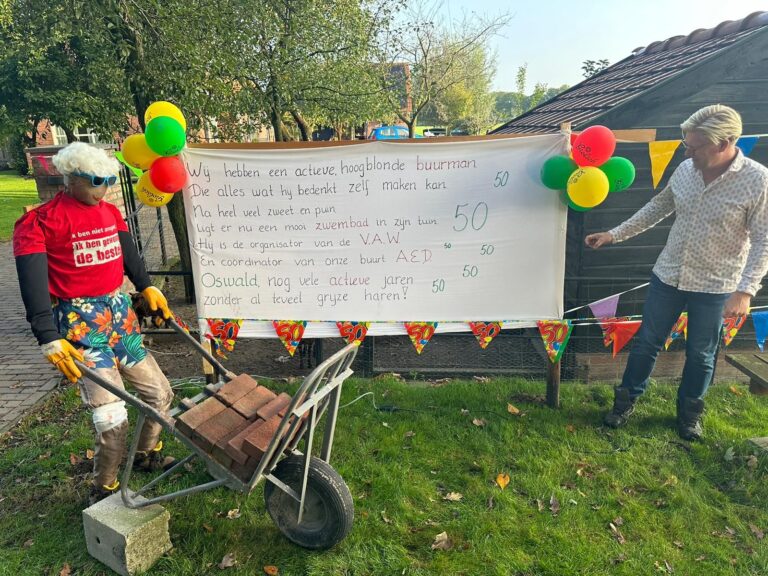 Wij hebben een actieve, hoogblonde buurman
Die alles wat hij bedenkt zelf maken kan.
50
Na heel veel zweet en puin
ligt er nu een mooi zwembad in zijn tuin
50
Hij is de organisator van de V.A.W.
50
En coordinator van onze buurt A.E.D
50
Oswald, nog vele actieve jaren
50
zonder al teveel grijze haren!
50
ik ben niet
ik ben gewoon
de beste
50
50
50
50
50
50